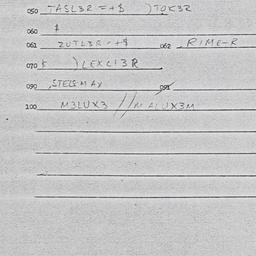 050 TASL3R = +$ )TOK3R
060 $
061 ZUTL3R - +$ 062 RIME-R
070 $ )LEXL13R
090 ,STELS-MAY 091
100 M3LUX3 // MALUX3M